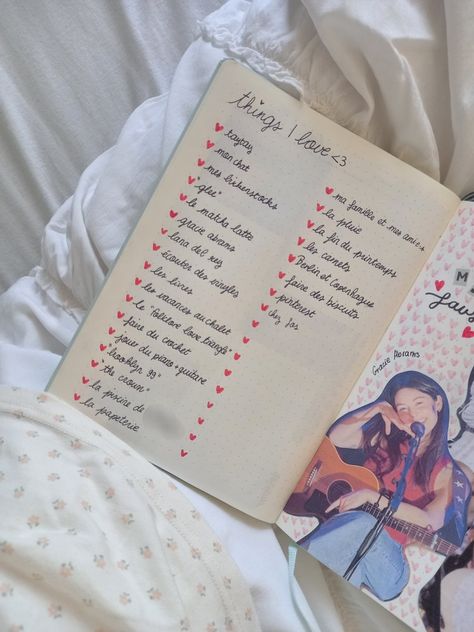 things I love <3
taytay
mon chat
mes birkenstocks
"glee"
le matcha latte
gracie abrams
lana del rey
écouter des vinyles
les livres
les vacances au chalet
le "folklore love triangle"
faire du crochet
jouer du piano + guitare
"brooklyn 99"
"the crown"
la piscine de
la papeterie
ma famille et mes ami·e·s
la pluie
la fin du printemps
les carnets
Berlin et Copenhague
faire des biscuits
pinterest
chez Jos
Gracie Abrams